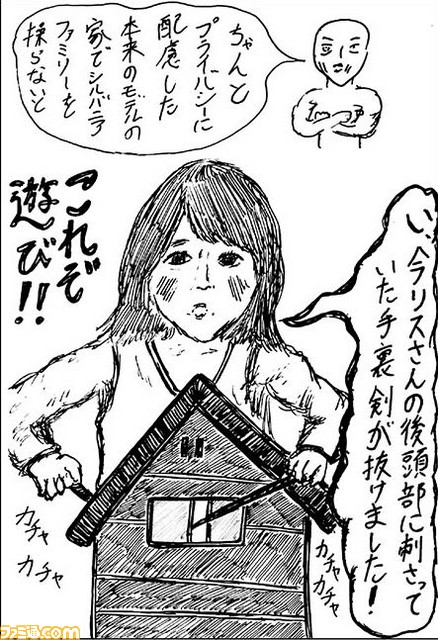 ちゃんと
プライバシーに
配慮した
本来のモデルの
家でシルバニア
ファミリーを
採らないと
い、今リスさんの後頭部に刺さって
いた手裏剣が抜けました!
これぞ
遊び!!
カチャ
カチャ
カチャ
カチャ
ファミ通.com